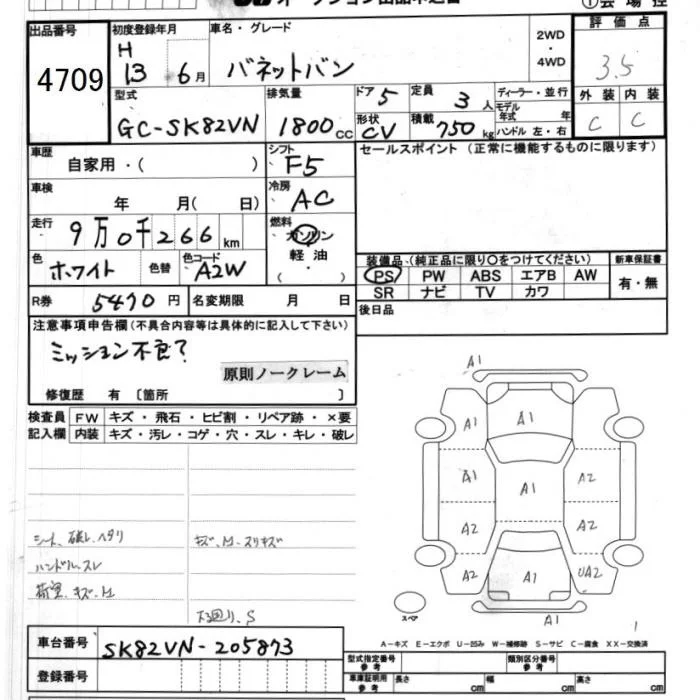 オークション出品申込書
出品番号
4709
初度登録年月
H
13 6月
車名・グレード
バネットバン
2WD
・
4WD
評価点
3.5
型式
GC-SK82VN
排気量
1800cc
ドア 5
定員 3人
形状 CV
積載 750kg
ディーラー・並行
モデル年式 年
ハンドル 左・右
外装 内装
C C
車歴
自家用・( )
シフト
F5
セールスポイント (正常に機能するものに限ります)
車検
年 月( 日)
冷房
AC
走行
9万0千266km
燃料
ガソリン
軽油
( ・ )
色
ホワイト
色替
色コード
A2W
装備品 (純正品に限り○をつけてください)
PS PW ABS エアB AW
SR ナビ TV カワ
新車保証書
有・無
R券 5470円 名変期限 月 日
後日品
注意事項申告欄(不具合内容等は具体的に記入して下さい)
ミッション不良?
原則ノークレーム
修復歴 有 〔箇所 〕
検査員記入欄
FW キズ・飛石・ヒビ割・リペア跡・×要
内装 キズ・汚レ・コゲ・穴・スレ・キレ・破レ
シート、破レ、ヘタリ
キズ、凹、スリキズ
ハンドル、スレ
荷室、キズ、凹
下回り、S
A1
A1
A1
A1
A1
A2
A2
A1
A2
A2
UA2
A1
A1
スペア
1
A-キズ E-エクボ U-凹み W-補修跡 S-サビ C-腐食 XX-交換済
車台番号
SK82VN-205873
登録番号
型式指定番号
参考
類別区分番号
参考
車庫証明用
参考
長さ cm
幅 cm
高さ cm